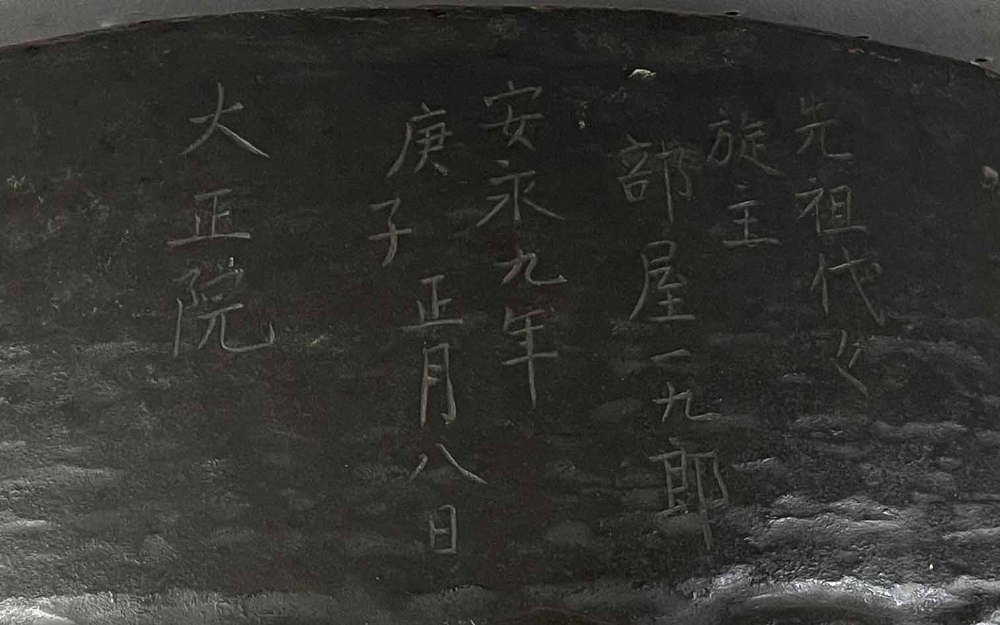 先祖代々
旋主
部屋一九郎
安永九年
庚子
正月八日
大正院